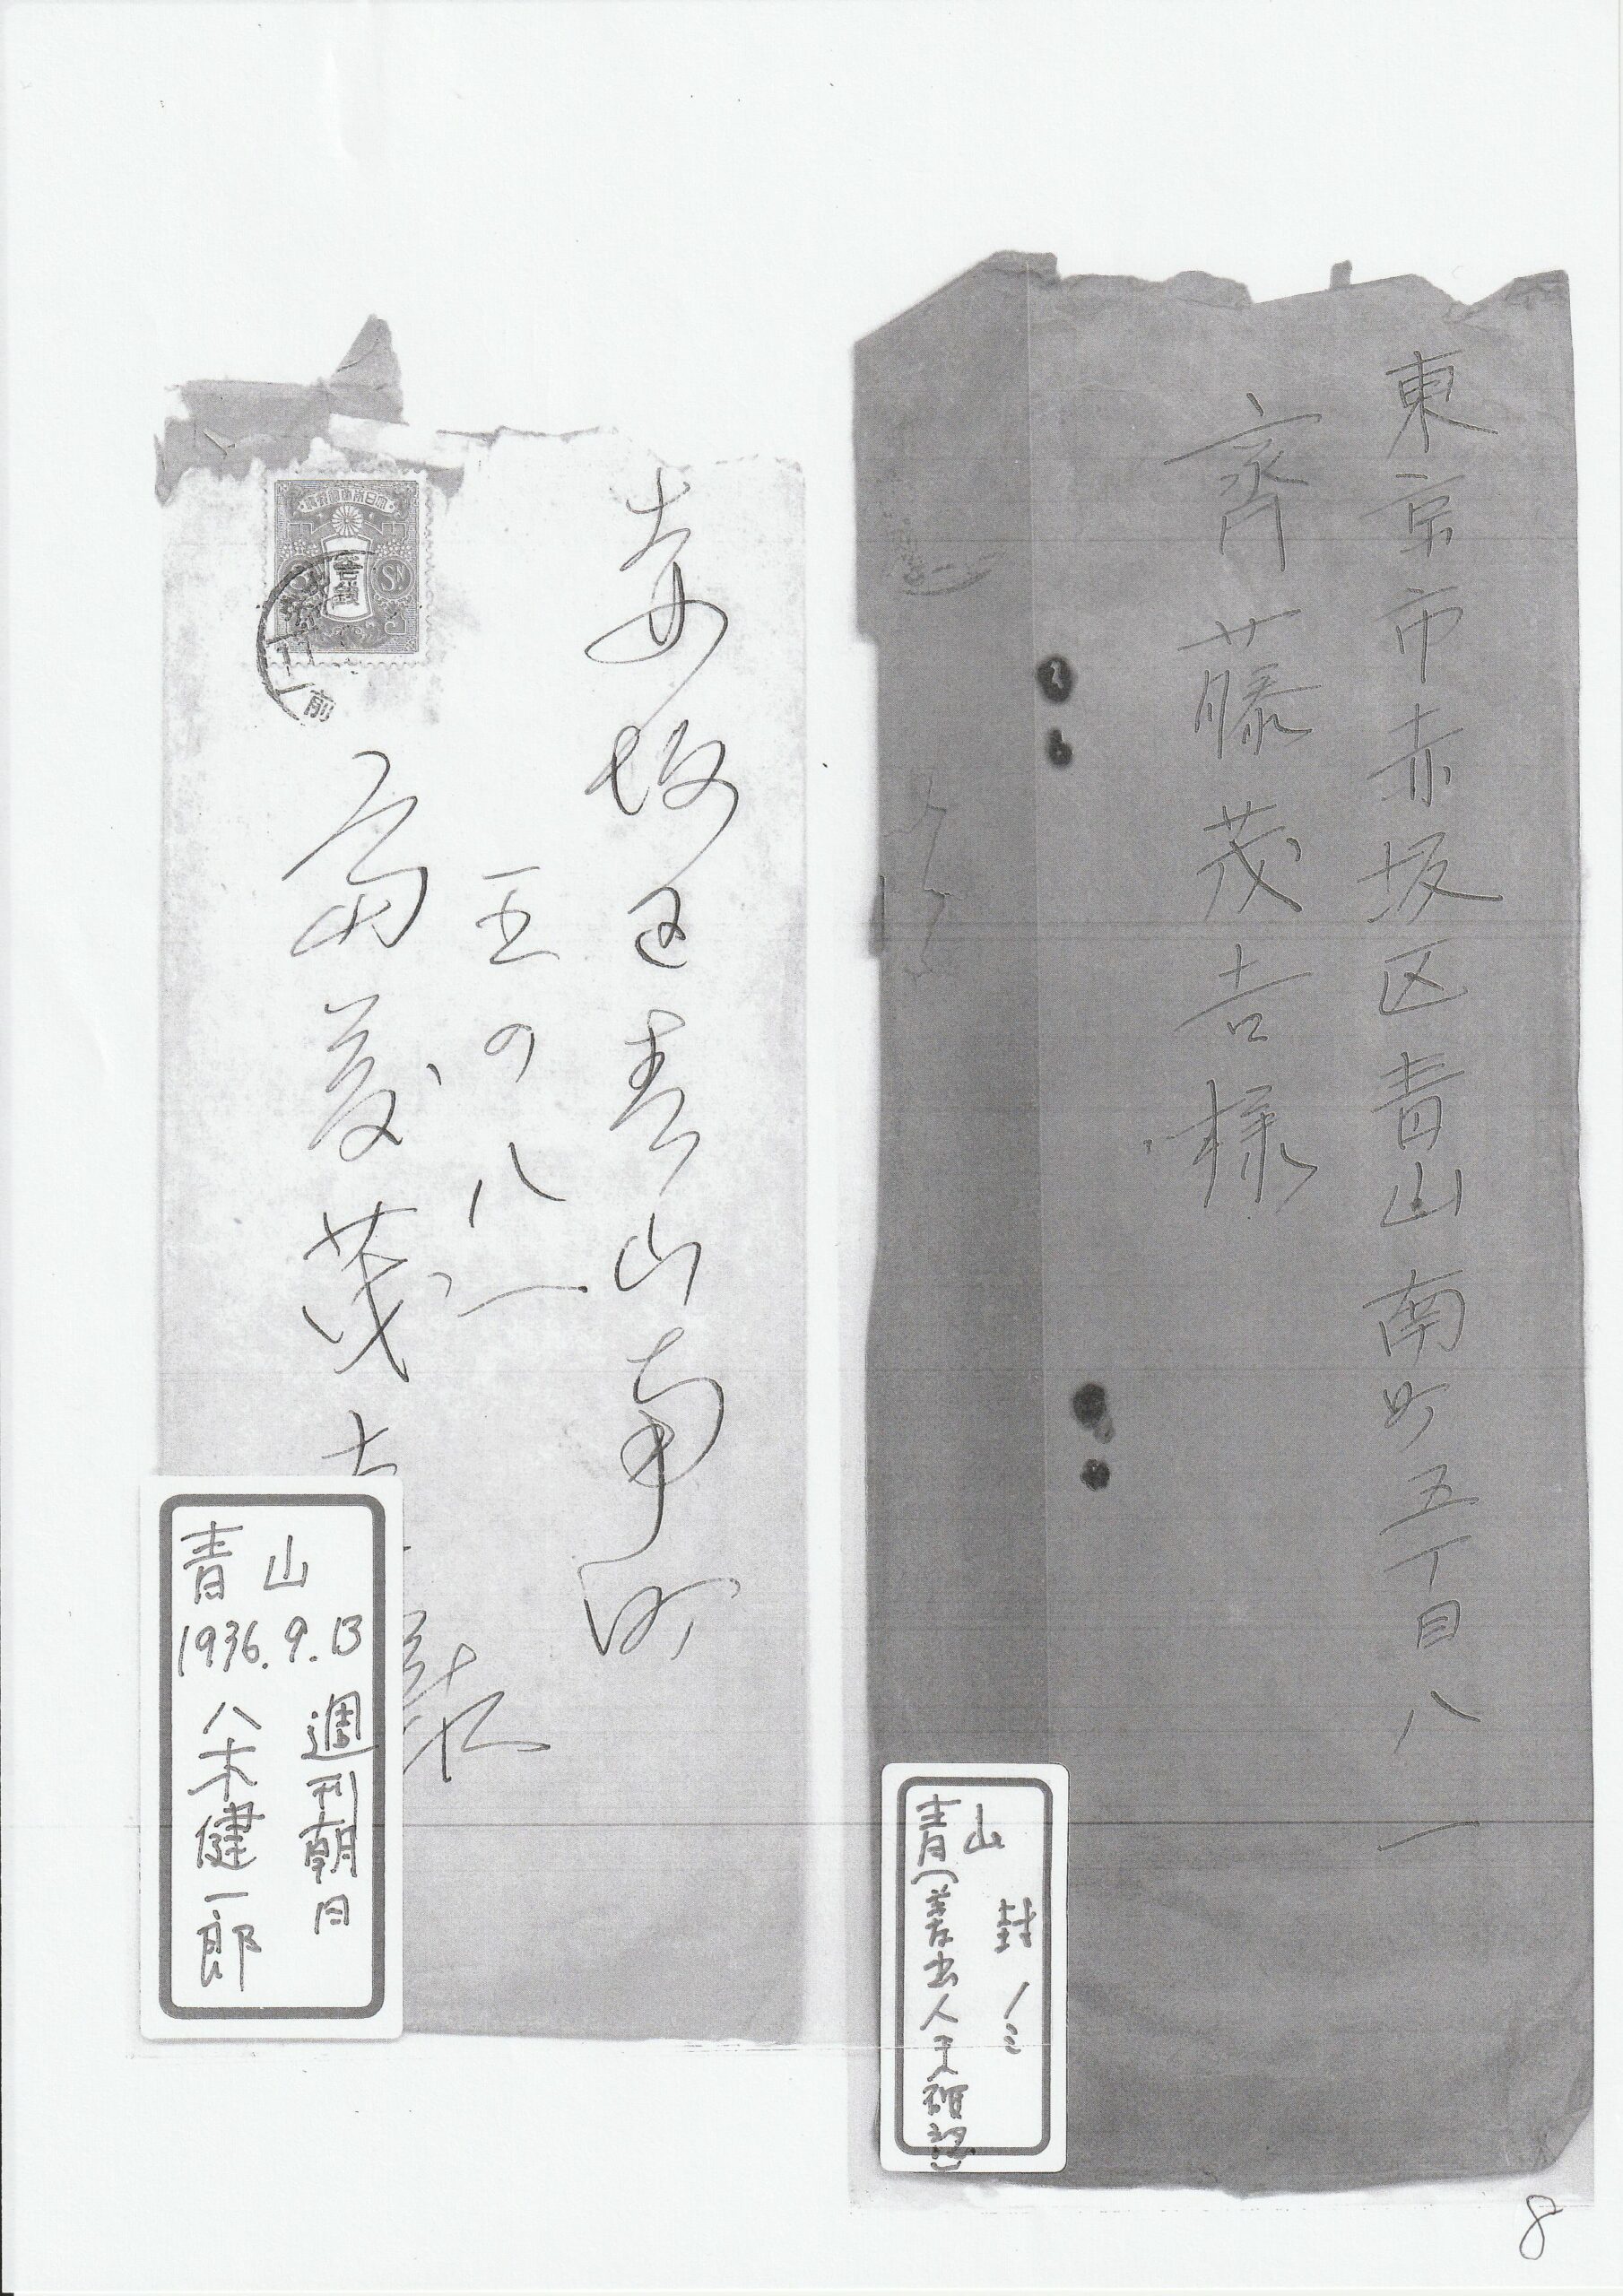 東京市赤坂区青山南町五丁目八一
齊藤茂吉様
赤坂区青山南町
五の八一
斎藤茂吉様
大日本帝国郵便
参銭
3
SN
前
青山
1936.9.13
週刊朝日
八木健一郎
青山
8